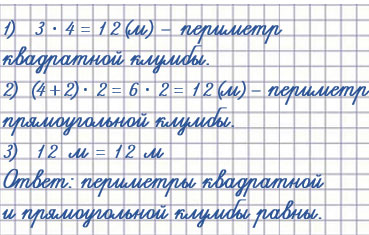 1) 3 · 4 = 12 (м) – периметр
квадратной клумбы.
2) (4 + 2) · 2 = 6 · 2 = 12 (м) – периметр
прямоугольной клумбы.
3) 12 м = 12 м
Ответ: периметры квадратной
и прямоугольной клумбы равны.